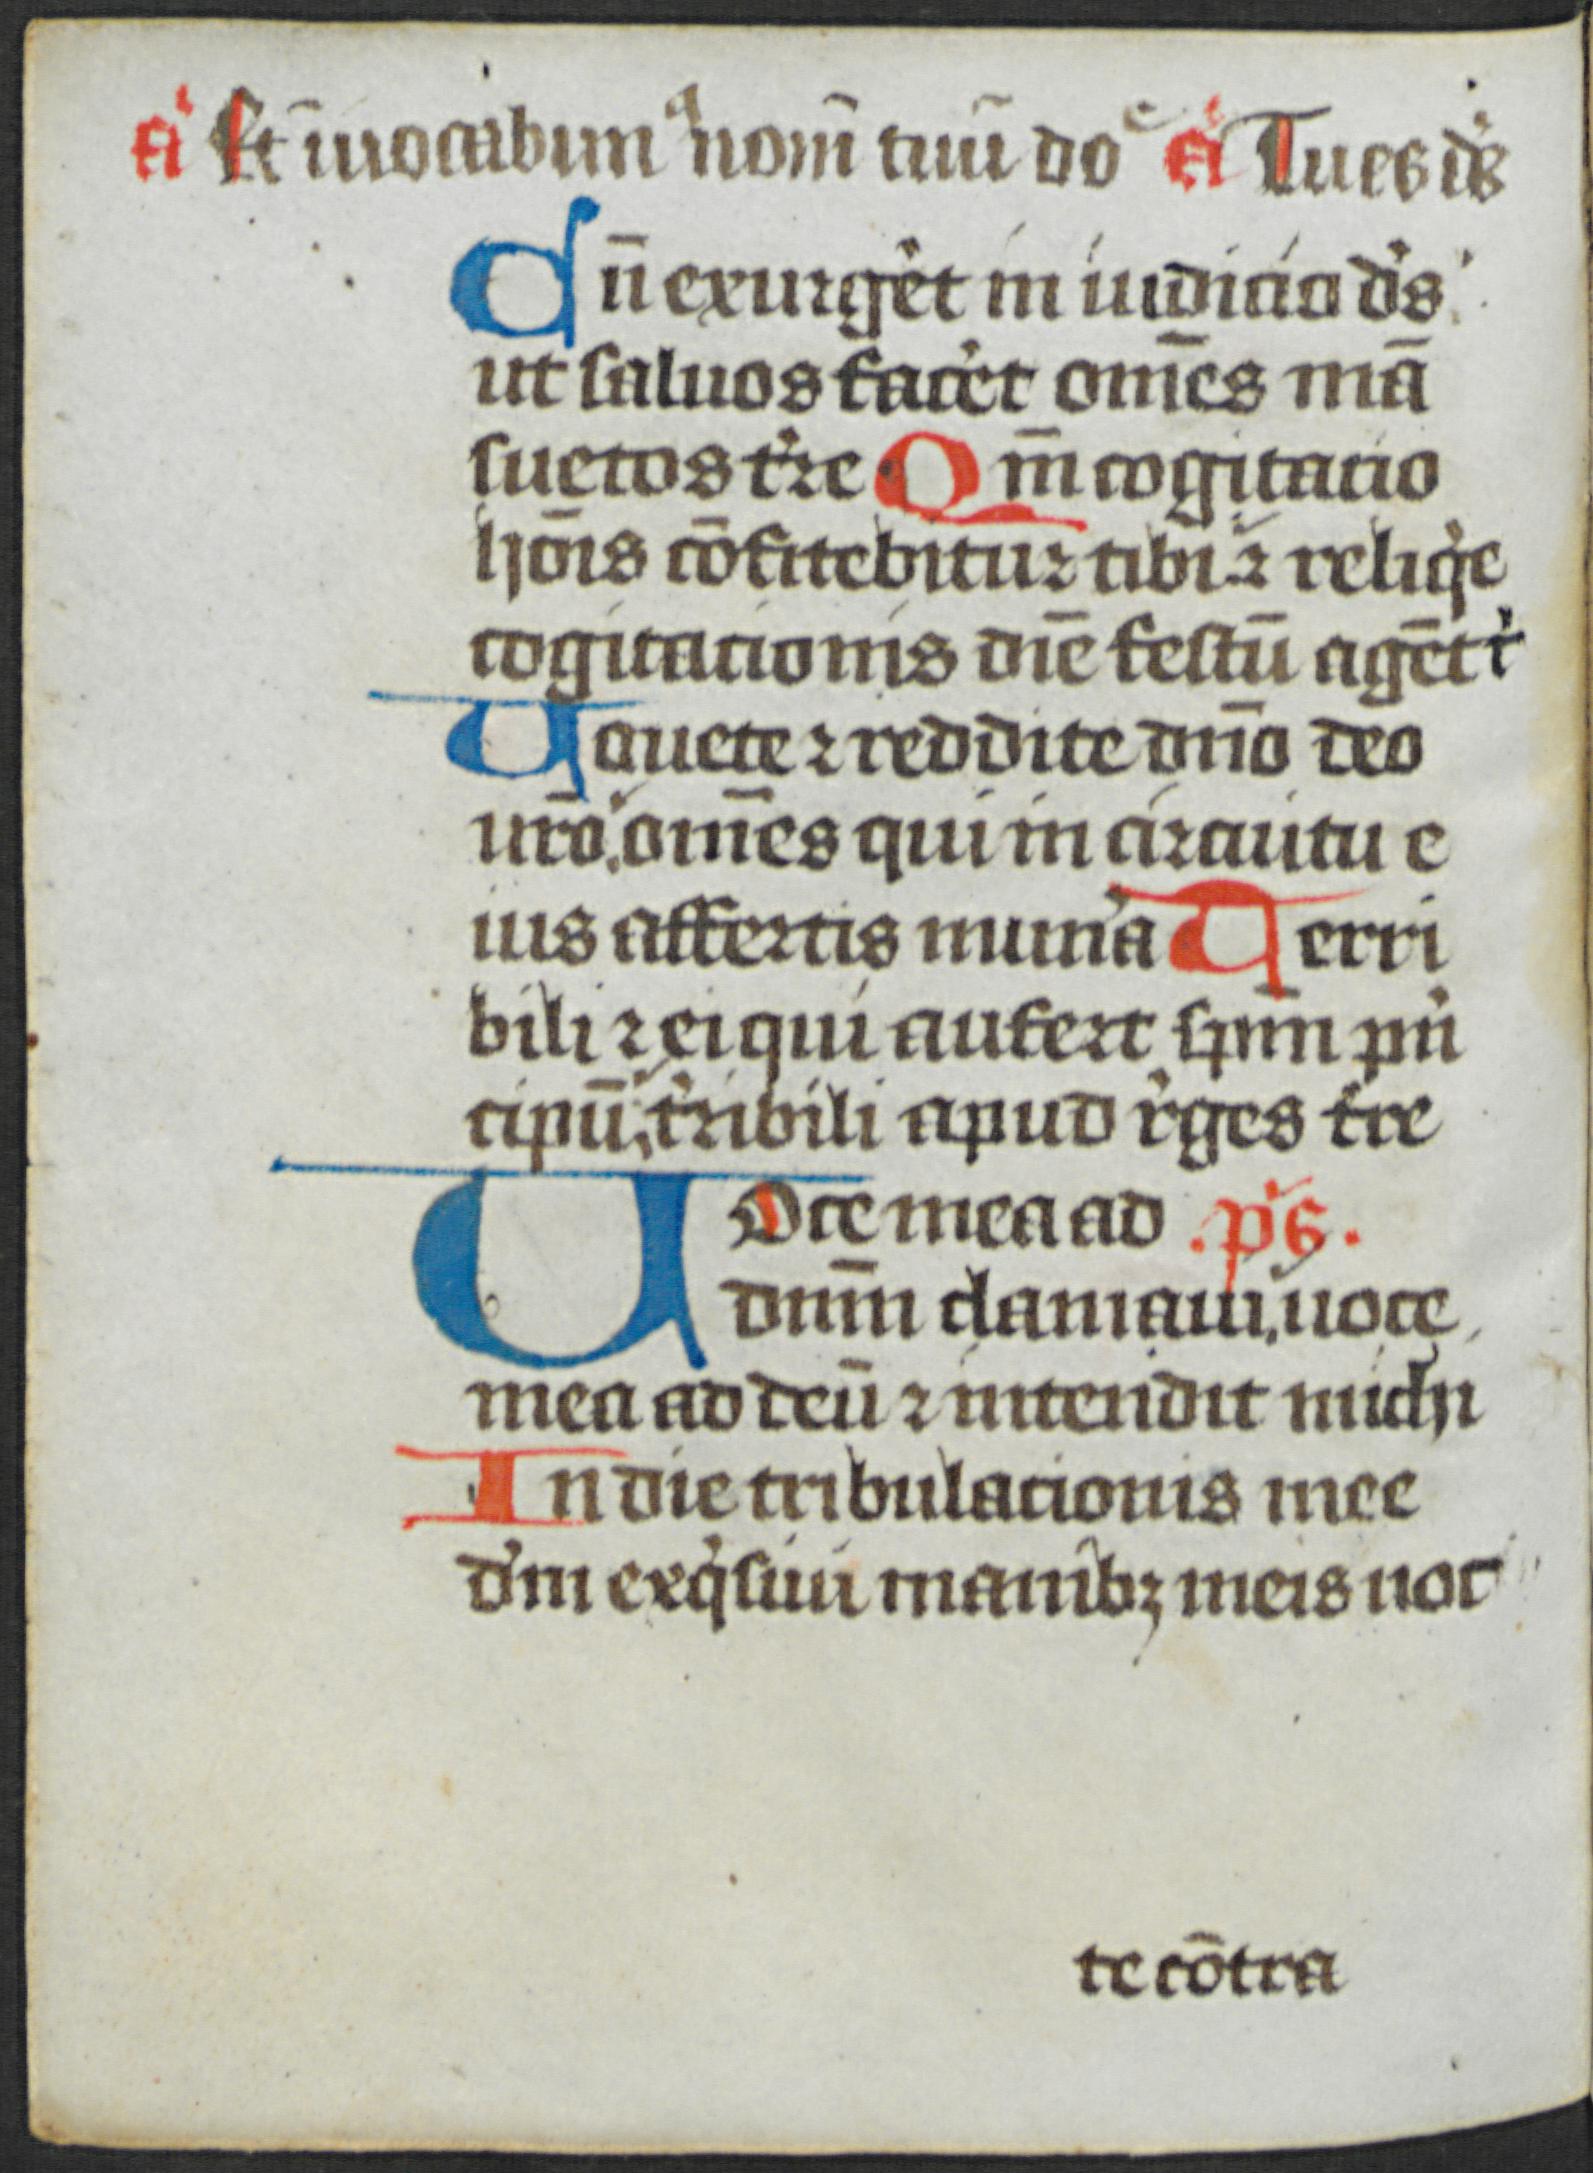 a̾ Et īuocabim᷒ nom̄ tuū do᷒ a̾ Tu es ds̾
Cū exurget̾ in iudicio ds̾
ut saluos facet̾ om̄es mā
suetos tr̾re Qm̄ cogitacio
ho͞is cōfitebitur tibi ⁊ reliqͥe
cogitacionis diē festū agēt t̾
Uouete ⁊ reddite dn̄o deo
ur̄o om̄es qui in circuitu e
ius affertis mun̾a Terri
bili ⁊ ei qui aufert sp̄m pͥn
cipū tr̾ribili apud r̾ges tr̾re
Uoce mea ad .ps̾.
dnm̄ clamaui uoce
mea ad deū ⁊ intendit michi
In die tribulacionis mee
dm̾ exqͥsiui manibꝫ meis noc
te cōtra